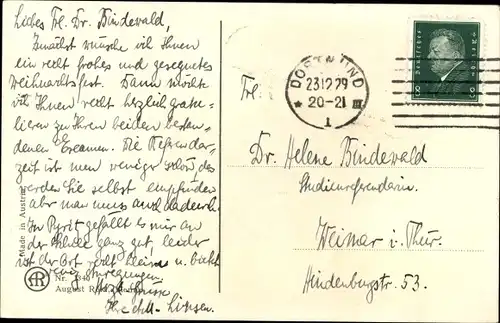 Liebes Frl. Dr. Bindewald,
Zunächst wünsche ich Ihnen
ein recht frohes und gesegnetes
Weihnachtsfest. Dann möchte
ich Ihnen recht herzlich gratu-
lieren zu Ihren beiden bestan-
denen Examen. Die Referendar-
zeit ist nun weniger schön, das
werden Sie selbst empfinden
aber man muss auch dadurch.
In Pyrit gefällt es mir an
der Schule ganz gut, leider
ist der Ort recht klein u. bietet
wenig Anregungen.
Herzl. Grüsse
Made in Austria
Nr.
August
DORTMUND
23.12.29
20-21 III
1
Deutsches Reich
8 8
Frl.
Dr. Helene Bindewald
Studienreferendarin.
Weimar i. Thür.
Hindenburgstr. 53.